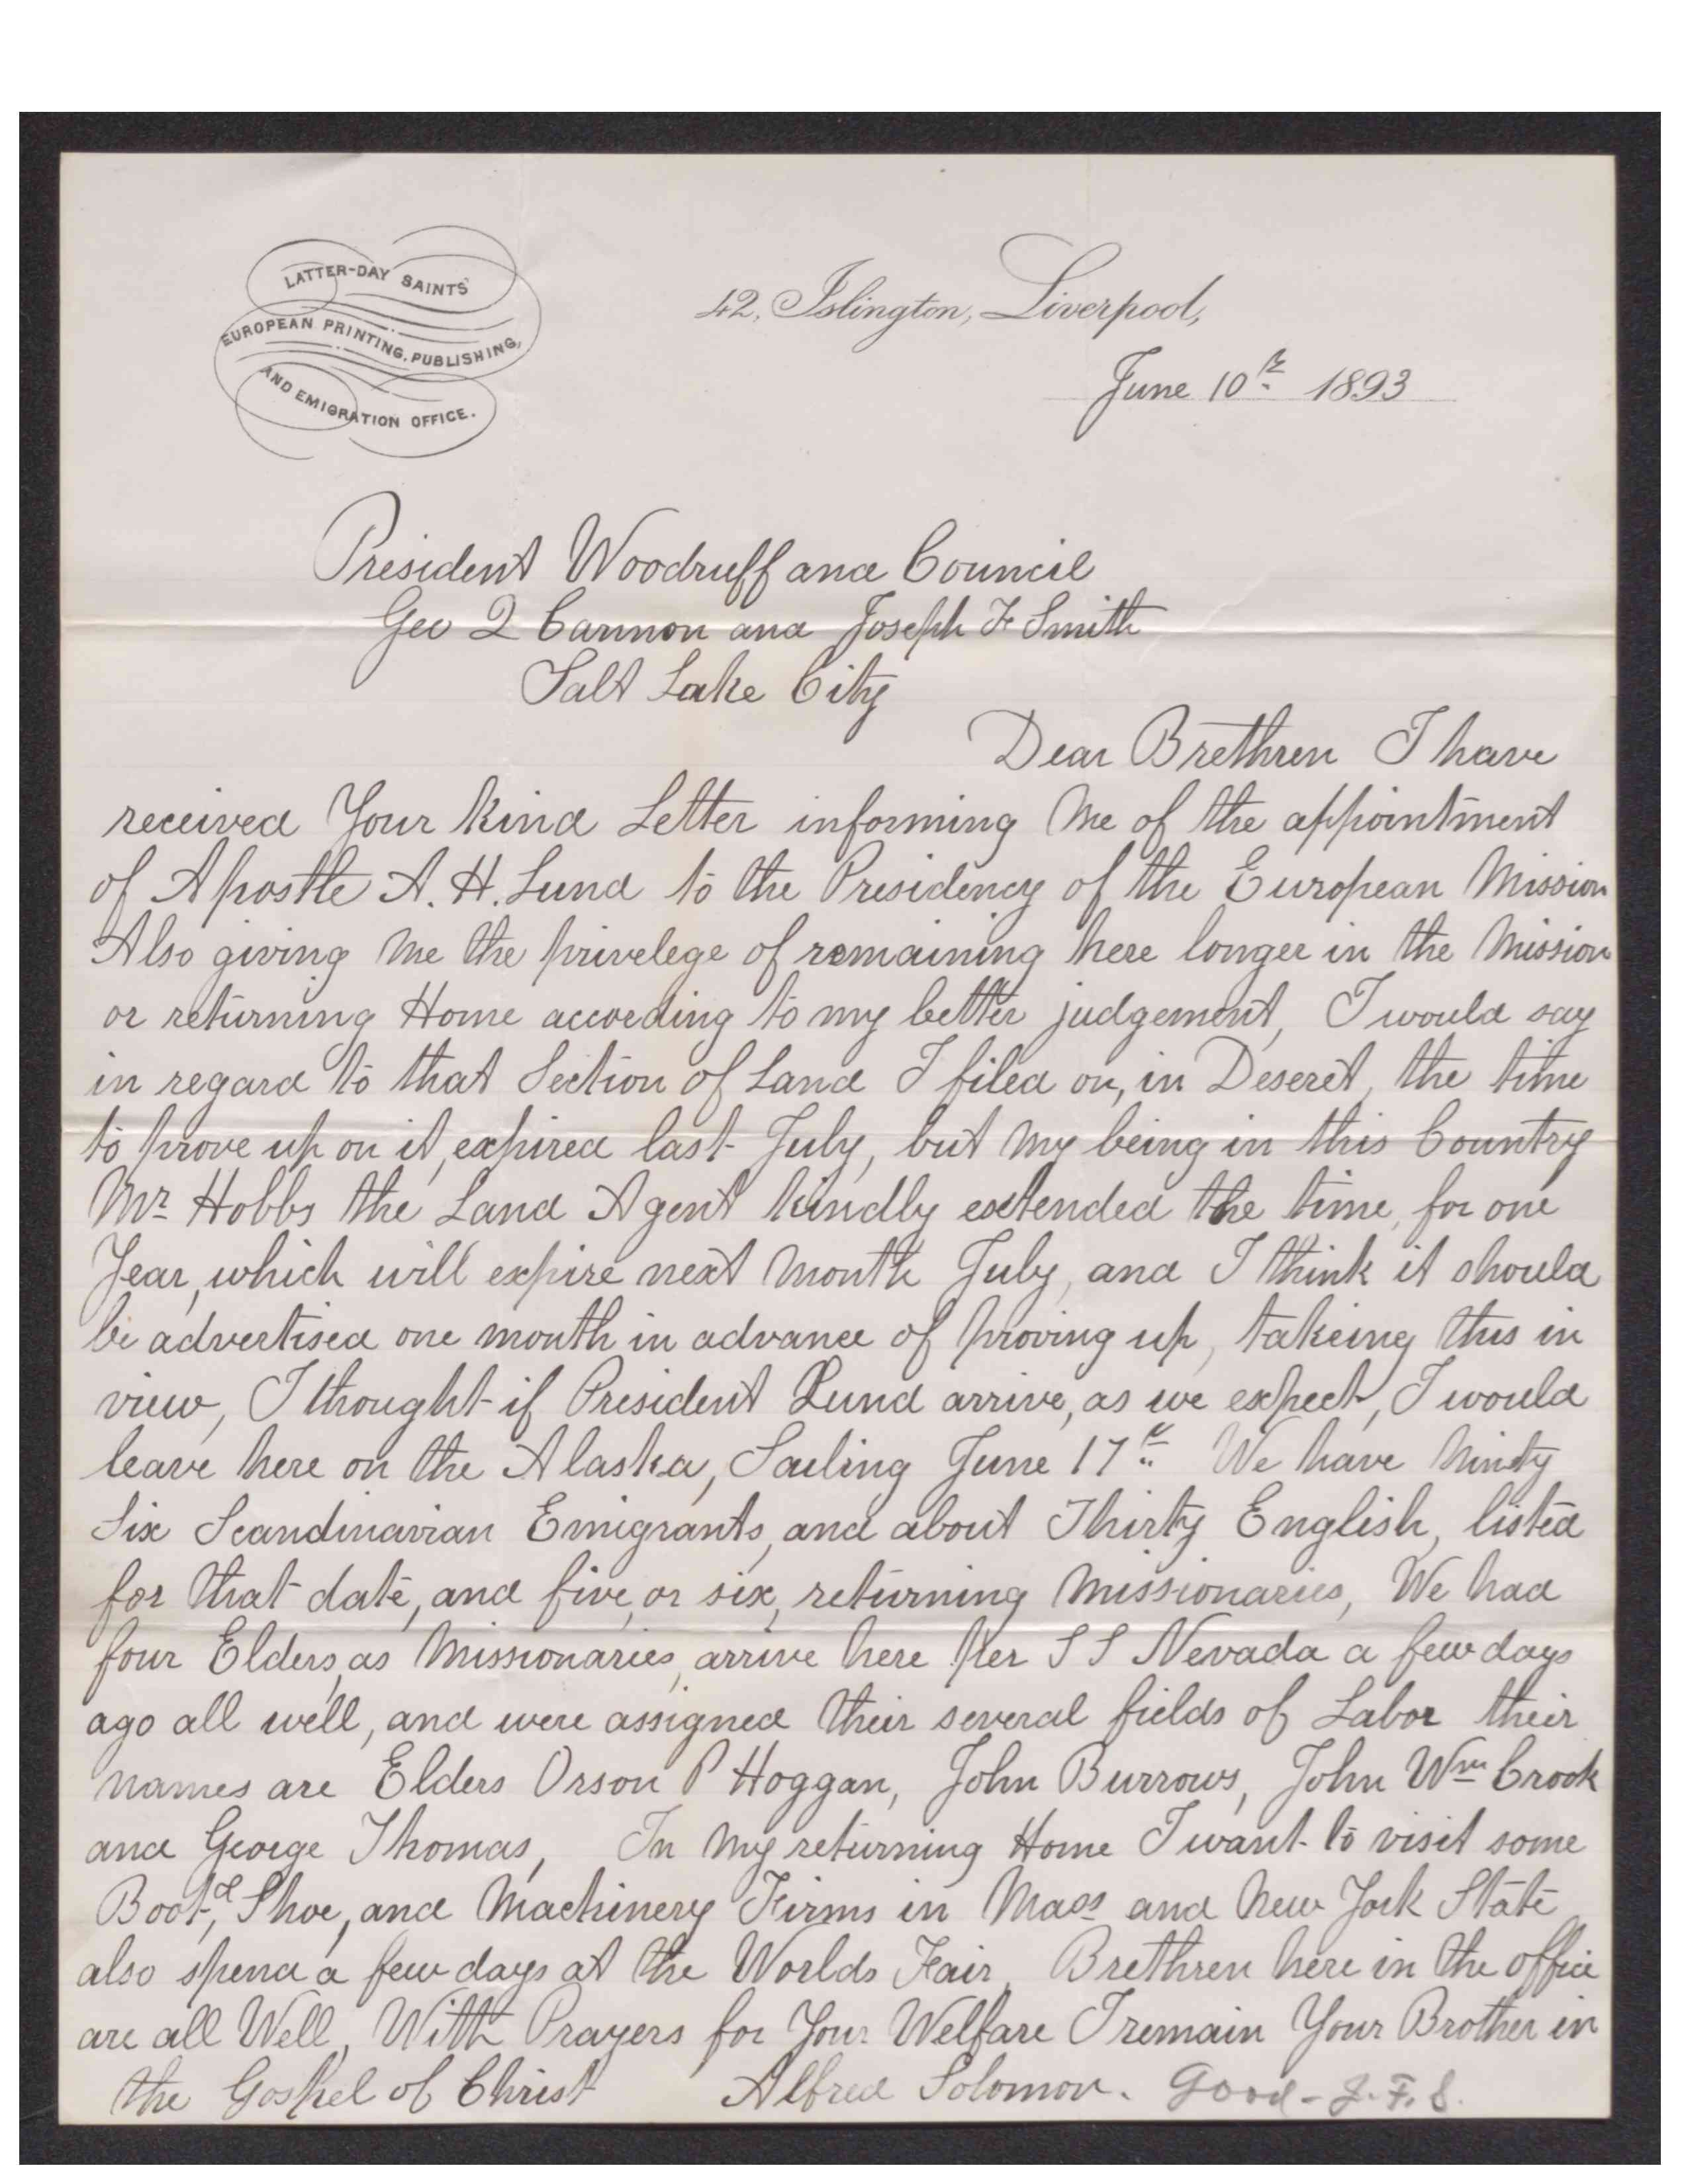 LATTER-DAY SAINTS'
EUROPEAN PRINTING, PUBLISHING,
AND EMIGRATION OFFICE.
42, Islington, Liverpool,
June 10th 1893
President Woodruff and Council
Geo Q Cannon and Joseph F Smith
Salt Lake City
Dear Brethren I have
received Your kind Letter informing me of the appointment
of Apostle A. H. Lund to the Presidency of the European Mission
Also giving me the privelege of remaining here longer in the Mission
or returning Home according to my better judgement, I would say
in regard to that Section of Land I filed on, in Deseret, the time
to prove up on it, expired last July, but my being in this Country
Mr Hobbs the Land Agent kindly extended the time, for one
Year, which will expire next month July, and I think it should
be advertised one month in advance of proving up, takeing this in
view, I thought if President Lund arrive, as we expect, I would
leave here on the Alaska, Sailing June 17th We have Ninty
Six Scandinavian Emigrants, and about Thirty English, listed
for that date, and five, or six, returning Missionaries, We had
four Elders, as Missionaries, arrive here per S S Nevada a few days
ago all well, and were assigned their several fields of Labor their
names are Elders Orson P Hoggan, John Burrows, John Wm Crook
and George Thomas, In my returning Home I want to visit some
Boot, & Shoe, and Machinery Firms in Mass and New York State
also spend a few days at the Worlds Fair, Brethren here in the office
are all Well, With Prayers for Your Welfare I remain Your Brother in
the Gospel of Christ Alfred Solomon. Good - J. F. S.